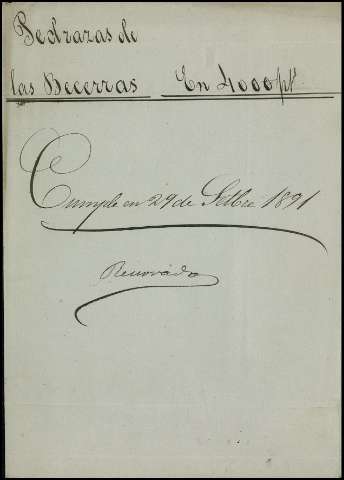 Pedrazas de
las Becerras En 4000 pts
Cumple en 29 de Setbre 1891
Renovada